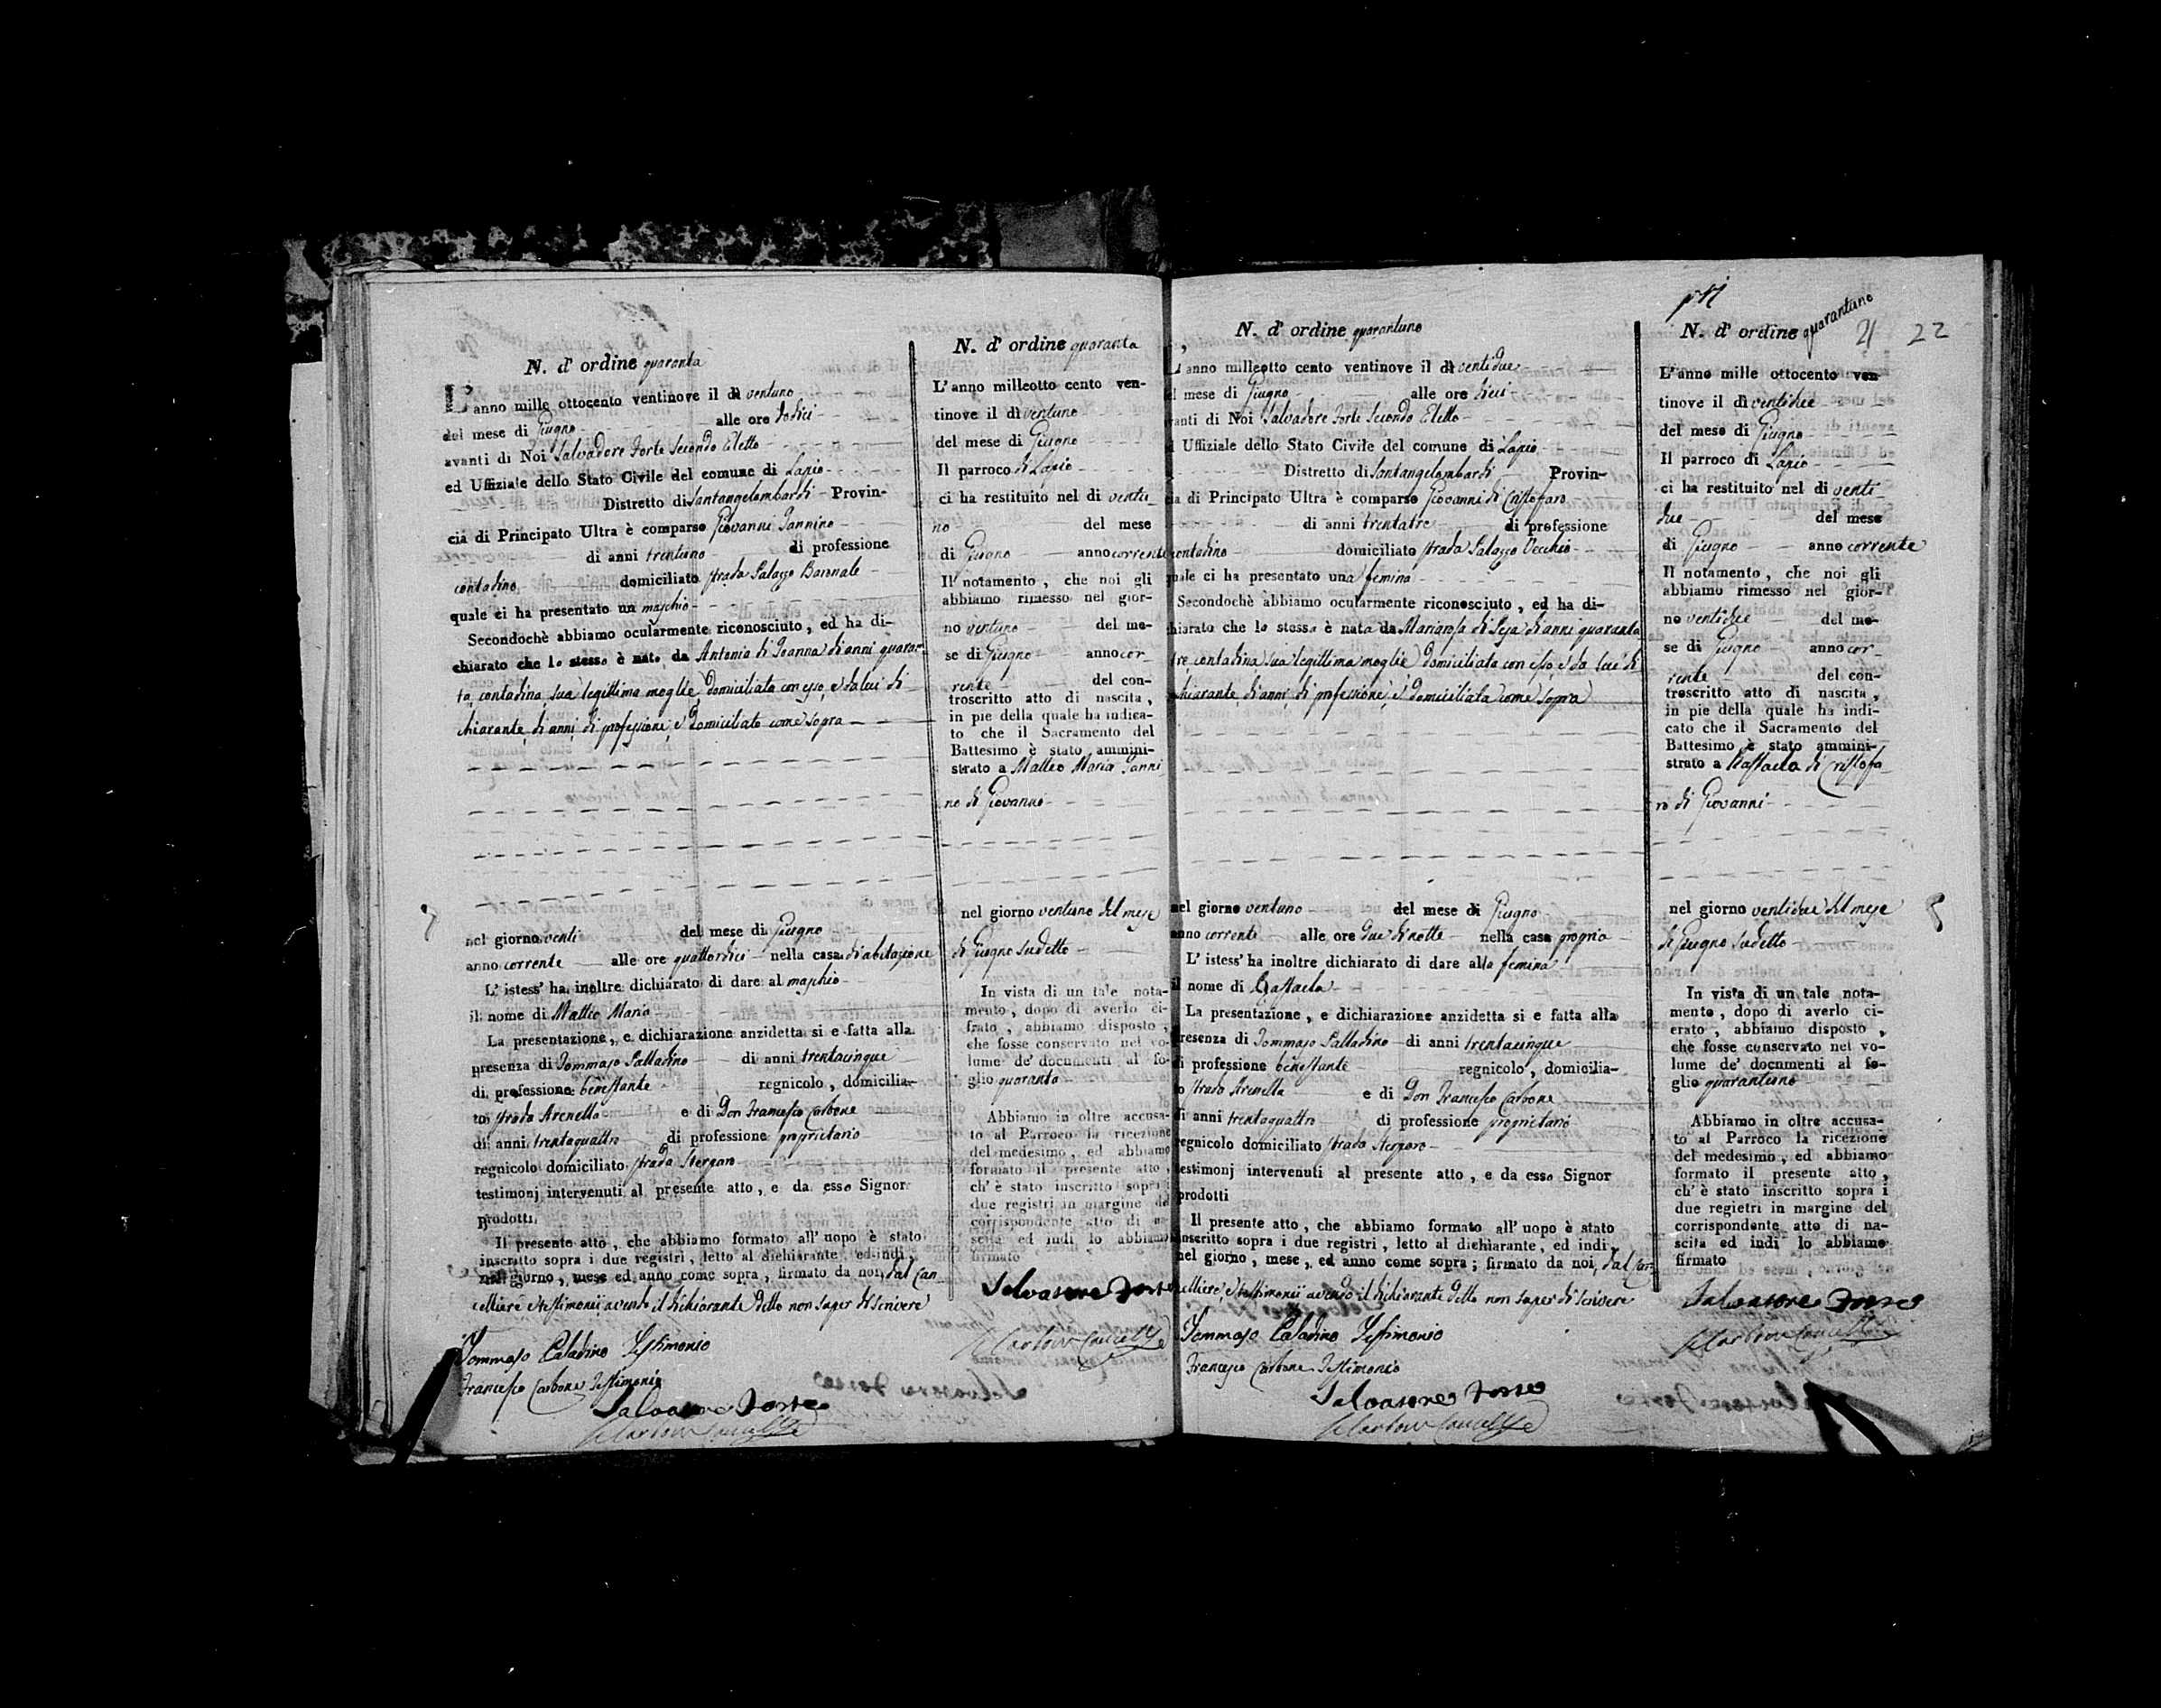 N. d' ordine quaranta
L' anno mille ottocento ventinove il dì ventuno
del mese di Giugno alle ore dodici
avanti di Noi Salvadore Forte Secondo Eletto
ed Uffiziale dello Stato Civile del comune di Lapio
Distretto di Santangelombardi Provin-
cia di Principato Ultra è comparso Giovanni Iannino
di anni trentuno di professione
contadino domiciliato strada Palazzo Baronale
quale ci ha presentato un maschio
Secondochè abbiamo ocularmente riconosciuto, ed ha di-
chiarato che lo stesso è nato da Antonia di Ioanna di anni quaran-
ta, contadina, sua legittima moglie domiciliata con esso, e da lui di
chiarante, di anni, di professione, e domiciliato come sopra
nel giorno venti del mese di Giugno
anno corrente alle ore quattordici nella casa di abitazione
L' istess' ha inoltre dichiarato di dare al maschio
il nome di Matteo Maria
La presentazione, e dichiarazione anzidetta si e fatta alla
presenza di Tommaso Palladino di anni trentacinque
di professione benestante regnicolo, domicilia-
to strada Arenella e di Don Francesco Carbone
di anni trentaquattro di professione proprietario
regnicolo domiciliato strada Sterparo
testimonj intervenuti al presente atto, e da esso Signor
prodotti.
Il presente atto, che abbiamo formato all' uopo è stato
inscritto sopra i due registri, letto al dichiarante ed indi,
nel giorno, mese ed anno come sopra, firmato da noi, dal Can-
celliere e testimonii avendo il dichiarante detto non saper di scrivere
Tommaso Paladino Testimonio
Francesco Carbone Testimonio
Salvatore Forte
N. d' ordine quaranta
L' anno milleotto cento ven-
tinove il dì ventuno
del mese di Giugno
Il parroco di Lapio
ci ha restituito nel di ventu
no del mese
di Giugno anno corrente
Il notamento, che noi gli
abbiamo rimesso nel gior-
no ventuno del me-
se di Giugno anno cor-
rente del con-
troscritto atto di nascita,
in pie della quale ha indica-
to che il Sacramento del
Battesimo è stato ammini-
strato a Matteo Maria Ianni
no di Giovanni
nel giorno ventuno del mese
di Giugno sudetto
In vista di un tale nota-
mento, dopo di averlo ci-
frato, abbiamo disposto,
che fosse conservato nel vo-
lume de' documenti al fo-
glio quaranta
Abbiamo in oltre accusa-
to al Parroco la ricezione
del medesimo, ed abbiamo
formato il presente atto,
ch' è stato inscritto sopra i
due registri in margine del
corrispondente atto di na-
scita ed indi lo abbiamo
firmato
Salvatore Forte
N. d' ordine quarantuno
L' anno milleotto cento ventinove il dì ventidue
del mese di Giugno alle ore dieci
avanti di Noi Salvadore Forte Secondo Eletto
ed Uffiziale dello Stato Civile del comune di Lapio
Distretto di Santangelombardi Provin-
cia di Principato Ultra è comparso Giovanni di Cristoffaro
di anni trentatre di professione
contadino domiciliato strada Palazzo Vecchio
quale ci ha presentato una femina
Secondochè abbiamo ocularmente riconosciuto, ed ha di-
chiarato che lo stessa è nata da Mariarosa di Peja di anni quaranta
tre contadina sua legittima moglie domiciliata con esso, e da lui di
chiarante, di anni, di professione, e domiciliata come sopra
nel giorno ventuno del mese di Giugno
anno corrente alle ore due di notte nella casa propria
L' istess' ha inoltre dichiarato di dare alla femina
il nome di Raffaela
La presentazione, e dichiarazione anzidetta si e fatta alla
presenza di Tommaso Palladino di anni trentacinque
di professione benestante regnicolo, domicilia-
to strada Arenella e di Don Francesco Carbone
di anni trentaquattro di professione proprietario
regnicolo domiciliato strada Sterparo
testimonj intervenuti al presente atto, e da esso Signor
prodotti
Il presente atto, che abbiamo formato all' uopo è stato
inscritto sopra i due registri, letto al dichiarante, ed indi,
nel giorno, mese, ed anno come sopra; firmato da noi, dal Can-
celliere, e testimonii avendo il dichiarante detto non saper di scrivere
Tommaso Paladino Testimonio
Francesco Carbone Testimonio
Salvatore Forte
N. d' ordine quarantuno
21 22
L' anno mille ottocento ven-
tinove il dì ventidue
del mese di Giugno
Il parroco di Lapio
ci ha restituito nel di venti
due del mese
di Giugno anno corrente
Il notamento, che noi gli
abbiamo rimesso nel gior-
no ventidue del me-
se di Giugno anno cor-
rente del con-
troscritto atto di nascita,
in pie della quale ha indi-
cato che il Sacramento del
Battesimo è stato ammini-
strato a Raffaela di Cristofa
ro di Giovanni
nel giorno ventidue del mese
di Giugno sudetto
In vista di un tale nota-
mento, dopo di averlo ci-
erato, abbiamo disposto,
che fosse conservato nel vo-
lume de' documenti al fo-
glio quarantuno
Abbiamo in oltre accusa-
to al Parroco la ricezione
del medesimo, ed abbiamo
formato il presente atto,
ch' è stato inscritto sopra i
due registri in margine del
corrispondente atto di na-
scita ed indi lo abbiamo
firmato
Salvatore Forte